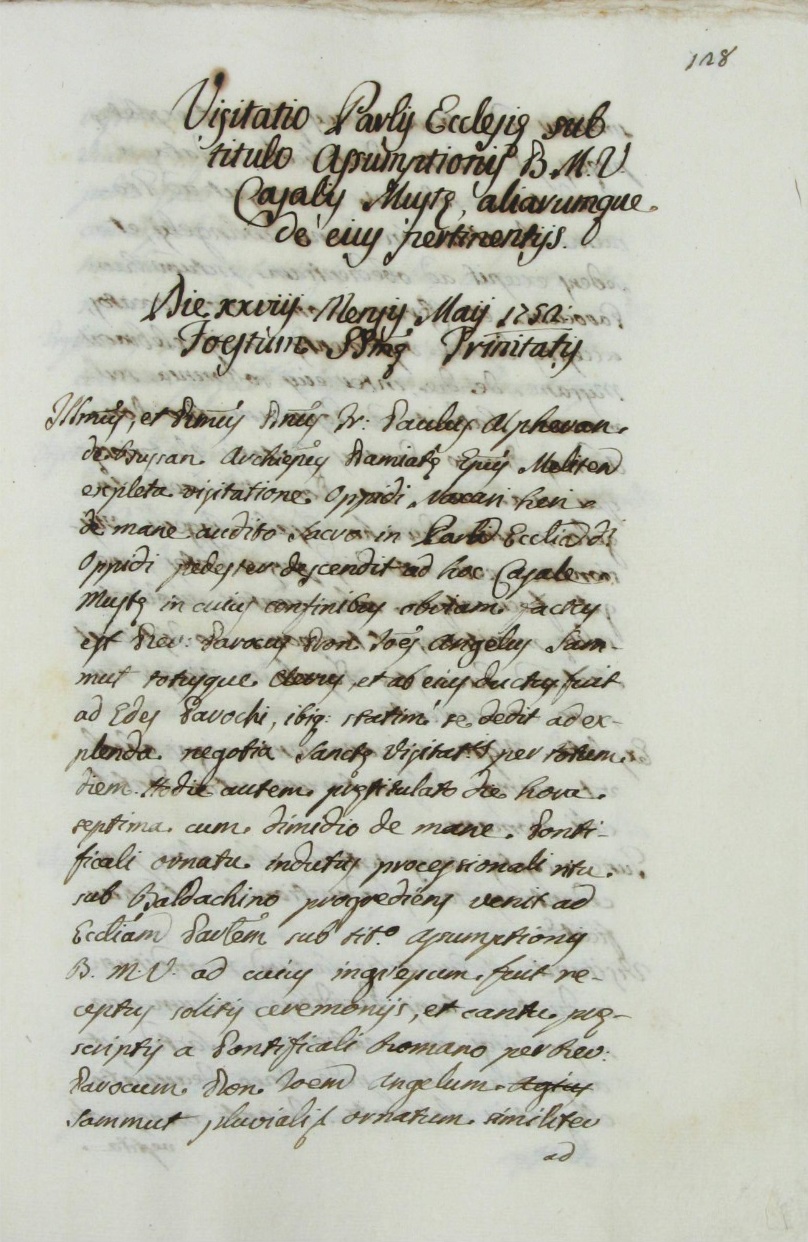 128
Visitatio Parlis Ecclesię sub
titulo Assumptionis B. M. V.
Casalis Mustę, aliarumque
de eius pertinentijs.
Die xxviij Mensis Maij 1752
Foestum SSmę Trinitatis
Illmus, et Rmus Dnus Fr: Paulus Alpheran
de Bussan Archiepus Damiatę Epus Meliten
expleta visitatione Oppidi Naxari heri
de mane audito sacro in Parli Ecclia di
Oppidi pedester descendit ad hoc Casale
Mustę in cuius confinibus obviam factus
est Rev: Parocus Don Joes Angelus Sam-
mut totusque Clerus, et ab eius ductus fuit
ad Edes Parochi, ibiq: statim se dedit ad ex-
plenda negotia Sanctę Visitatis per totum
diem. Hodie autem pręstitulato die hora
septima cum dimidio de mane Ponti-
ficali ornatu indutus processionali ritu
sub Baldachino progrediens venit ad
Eccliam Parlem sub tito Assumptionis
B. M. V. ad cuius ingressum fuit re-
ceptus solitis ceremonijs, et cantu prę-
scriptis a Pontificali Romano per Rev:
Parocum Don Joem Angelum Agius
Sammut pluviali ornatum similiter
ad